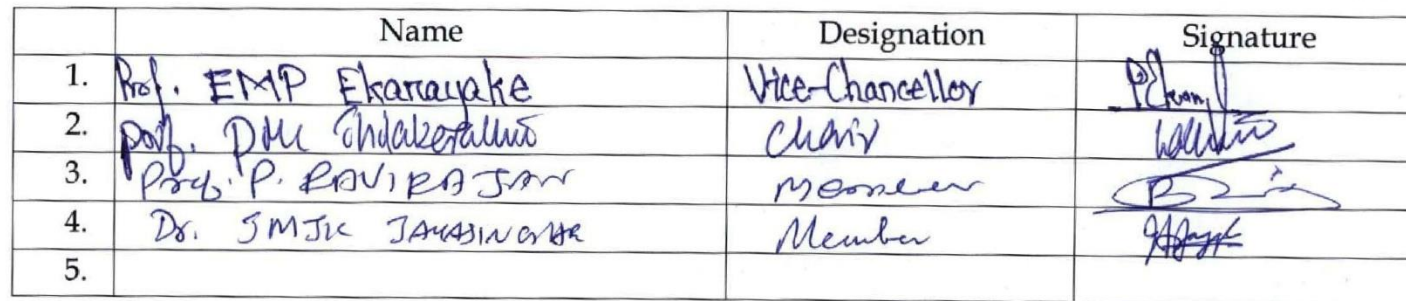 Name Designation Signature
1. Prof. EMP Ekanayake Vice-Chancellor
2. Prof. Chair
3. Prof. P. RAVIRAJAN Member
4. Dr. JAYASINGHE Member
5.